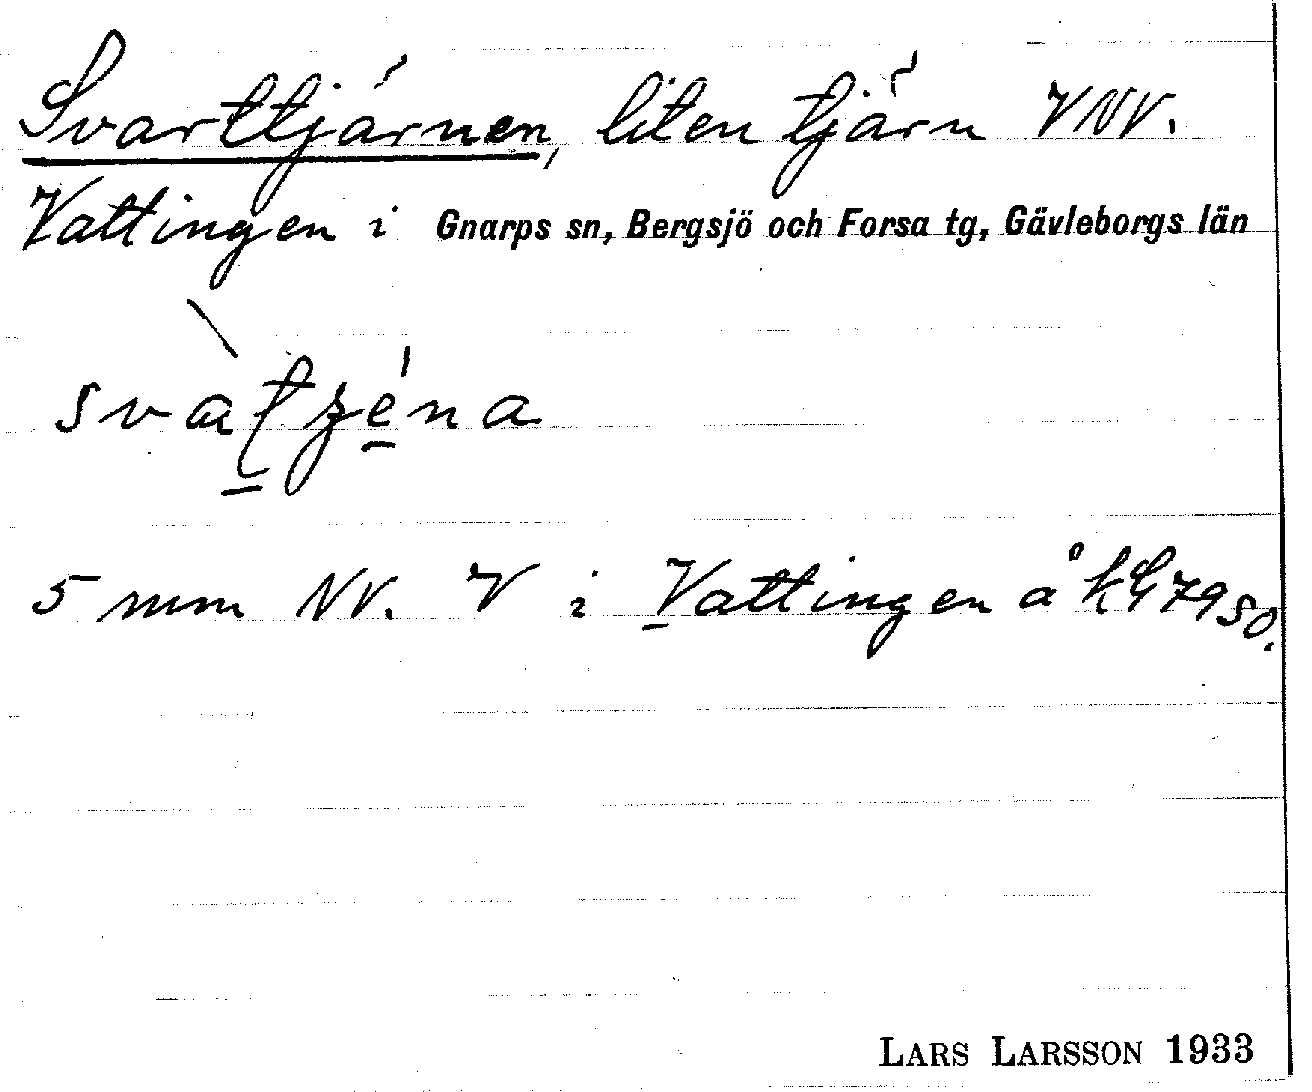 Svarttjärnen, liten tjärn VNV.
Vattingen i Gnarps sn, Bergsjö och Forsa tg, Gävleborgs län
5 mm NV. V i Vattingen å kG79SO.
LARS LARSSON 1933